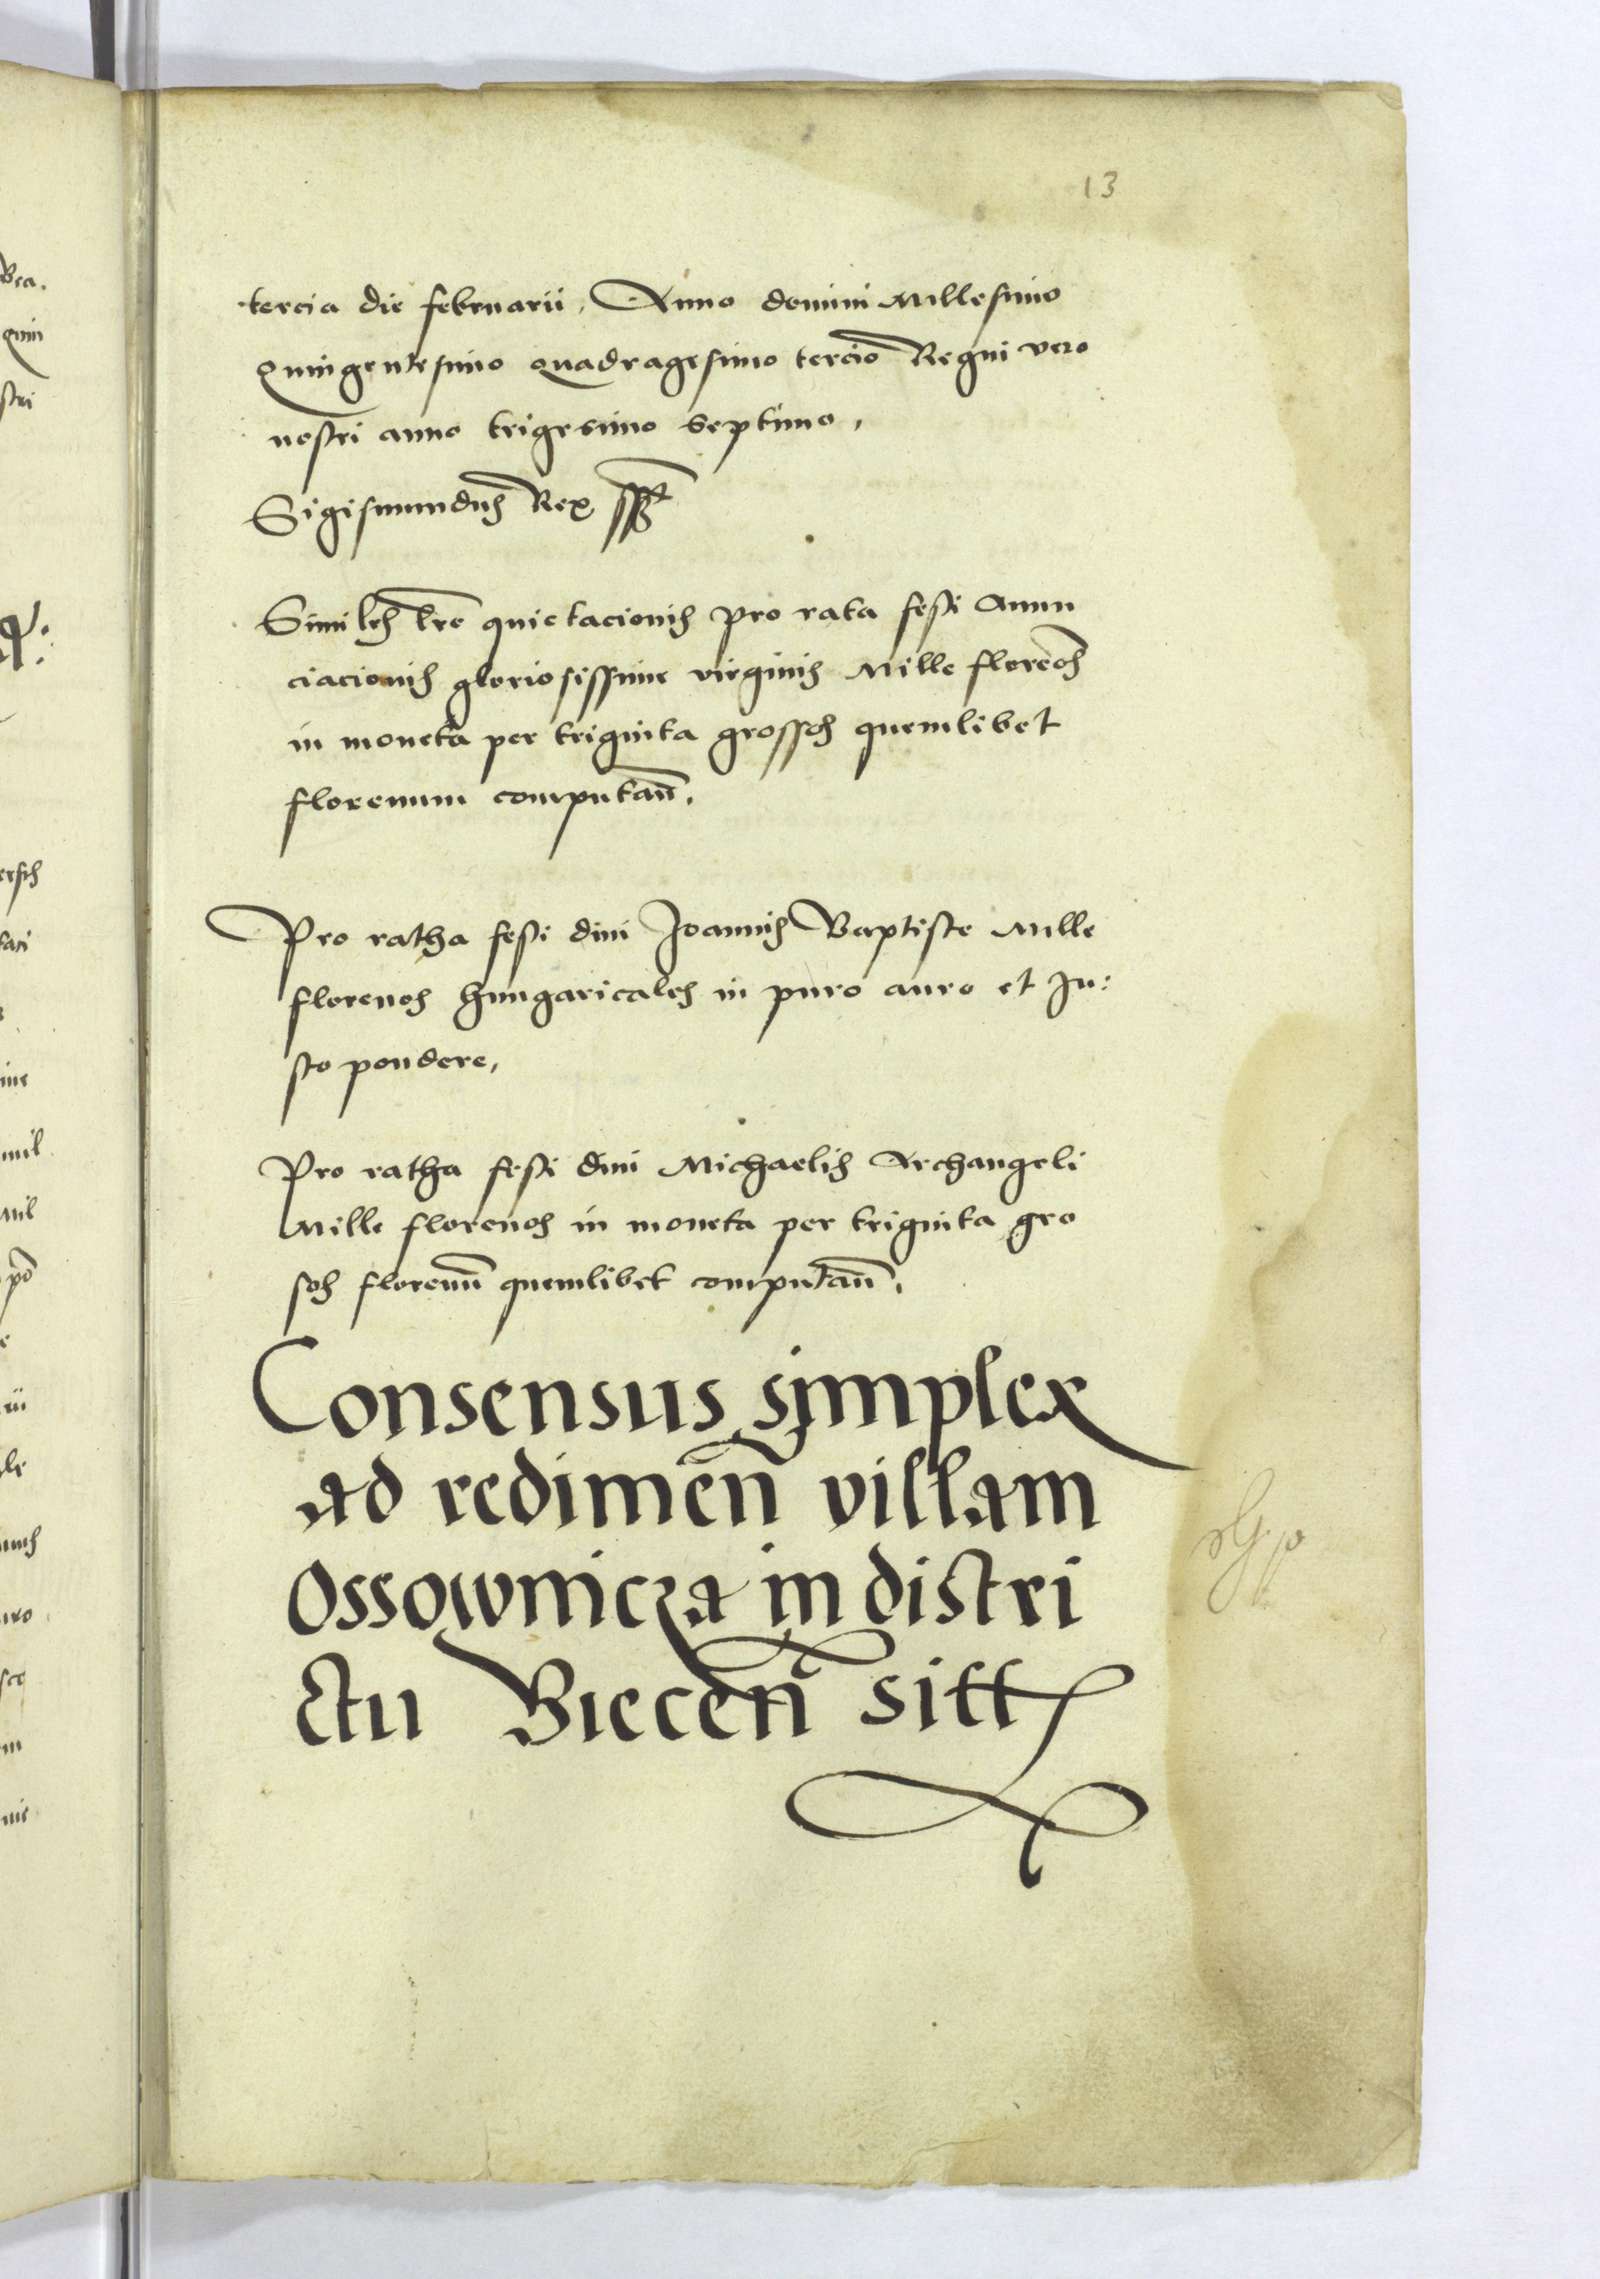 13
tercia die februarii, Anno domini Millesimo
Quingentesimo quadragesimo tercio Regni vero
nostri anno trigesimo septimo,
Sigismundus Rex sspt
Similes lre quietacionis pro rata festi Annu
ciacionis gloriosissime virginis Mille florenos
in moneta per triginta grossos quemlibet
florenum computan̄.
Pro ratha festi divi Joannis Baptiste Mille
florenos hungaricales in puro auro et Ju:
sto pondere,
Pro ratha festi divi Michaelis Archangeli
Mille florenos in moneta per triginta gro
sos florenū quemlibet computan̄.
Consensus simplex
ad redimen̄ villam
Ossownicza in distri
ctu Biecen̄ sitt